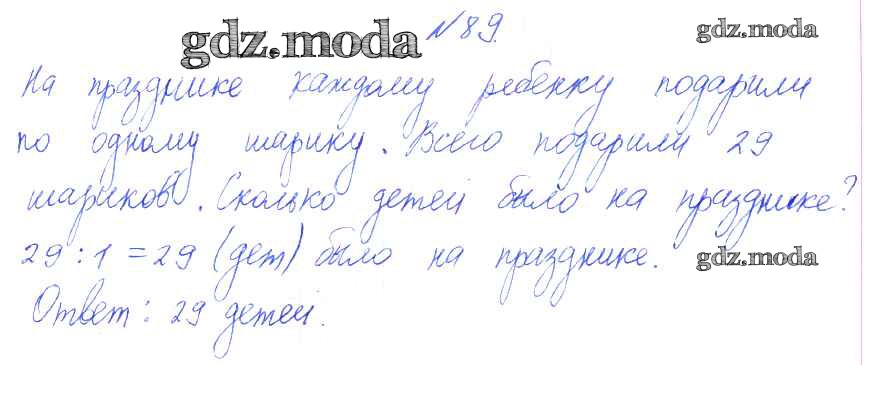 gdz.moda №89. gdz.moda
На празднике каждому ребенку подарили
по одному шарику. Всего подарили 29
шариков. Сколько детей было на празднике?
29 : 1 = 29 (дет) было на празднике. gdz.moda
Ответ: 29 детей.